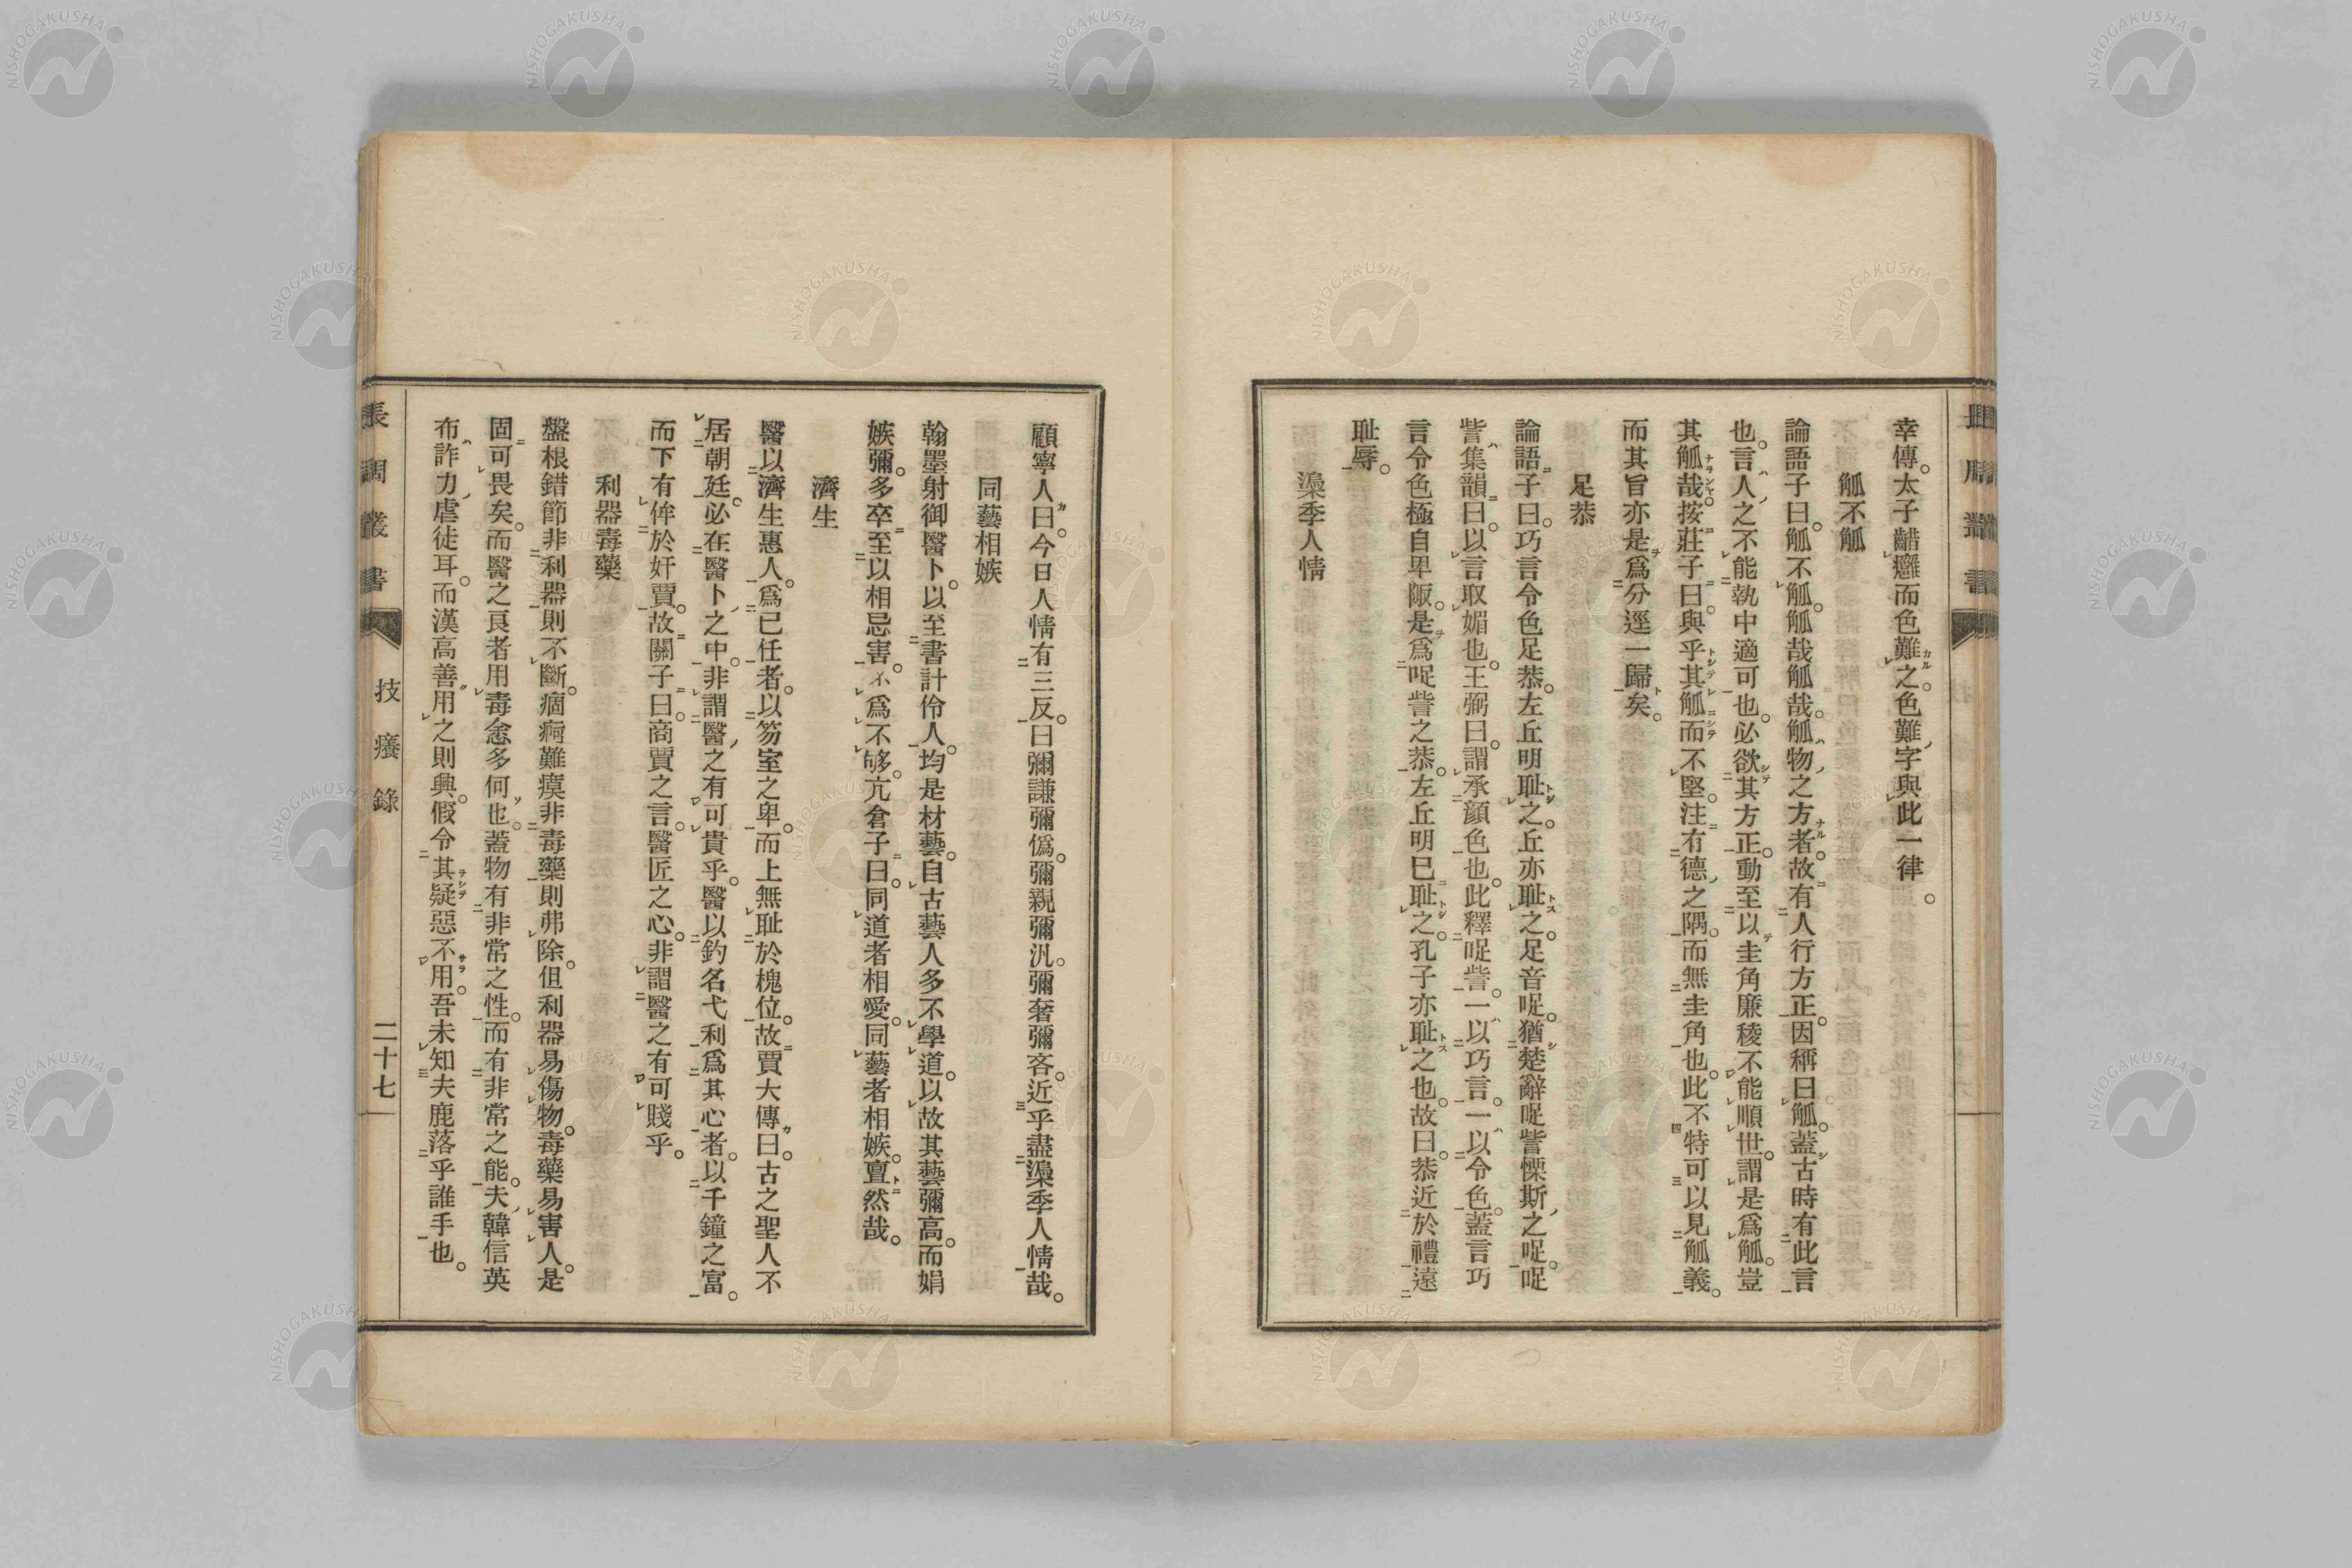 幸傳。太子齰癰而色難之。色難字與此一律。
觚不觚
論語子曰。觚不觚。觚哉觚哉。觚物之方者。故有人行方正。因稱曰觚。蓋古時有此言
也。言人之不能執中適可也。必欲其方正。動至以圭角廉稜不能順世。謂是爲觚。豈
其觚哉。按莊子曰。與乎其觚而不堅。注有德之隅。而無圭角也。此不特可以見觚義。
而其旨亦是爲分逕一歸矣。
足恭
論語子曰。巧言令色足恭。左丘明耻之。丘亦耻之。足音哫。猶楚辭哫訾慄斯之哫。哫
訾集韻曰。以言取媚也。王弼曰。謂承顏色也。此釋哫訾。一以巧言。一以令色。蓋言巧
言令色極自卑陬。是爲哫訾之恭。左丘明已耻之。孔子亦耻之也。故曰。恭近於禮遠
耻辱。
澡季人情
顧寧人曰。今日人情有三反。曰彌謙彌僞。彌親彌汎。彌奢彌吝。近乎盡澡季人情哉。
同藝相嫉
翰墨射御醫卜。以至書計伶人。均是材藝。自古藝人多不學道。以故其藝彌高。而娼
嫉彌多。卒至以相忌害。不爲不够。亢倉子曰。同道者相愛。同藝者相嫉。亶然哉。
濟生
醫以濟生惠人。爲已任者。以笏室之卑。而上無耻於槐位。故賈大傳曰。古之聖人不
居朝廷。必在醫卜之中。非謂醫之有可貴乎。醫以釣名弋利爲其心者。以千鐘之富。
而下有侔於奸賈。故關子曰。商賈之言。醫匠之心。非謂醫之有可賤乎。
利器毒藥
盤根錯節非利器則不斷。痼痾難瘼非毒藥則弗除。但利器易傷物。毒藥易害人。是
固可畏矣。而醫之良者用毒愈多何也。蓋物有非常之性。而有非常之能。夫韓信英
布詐力虐徒耳。而漢高善用之則興。假令其疑惡不用。吾未知夫鹿落乎誰手也。
長調叢書
技癢錄
二十七